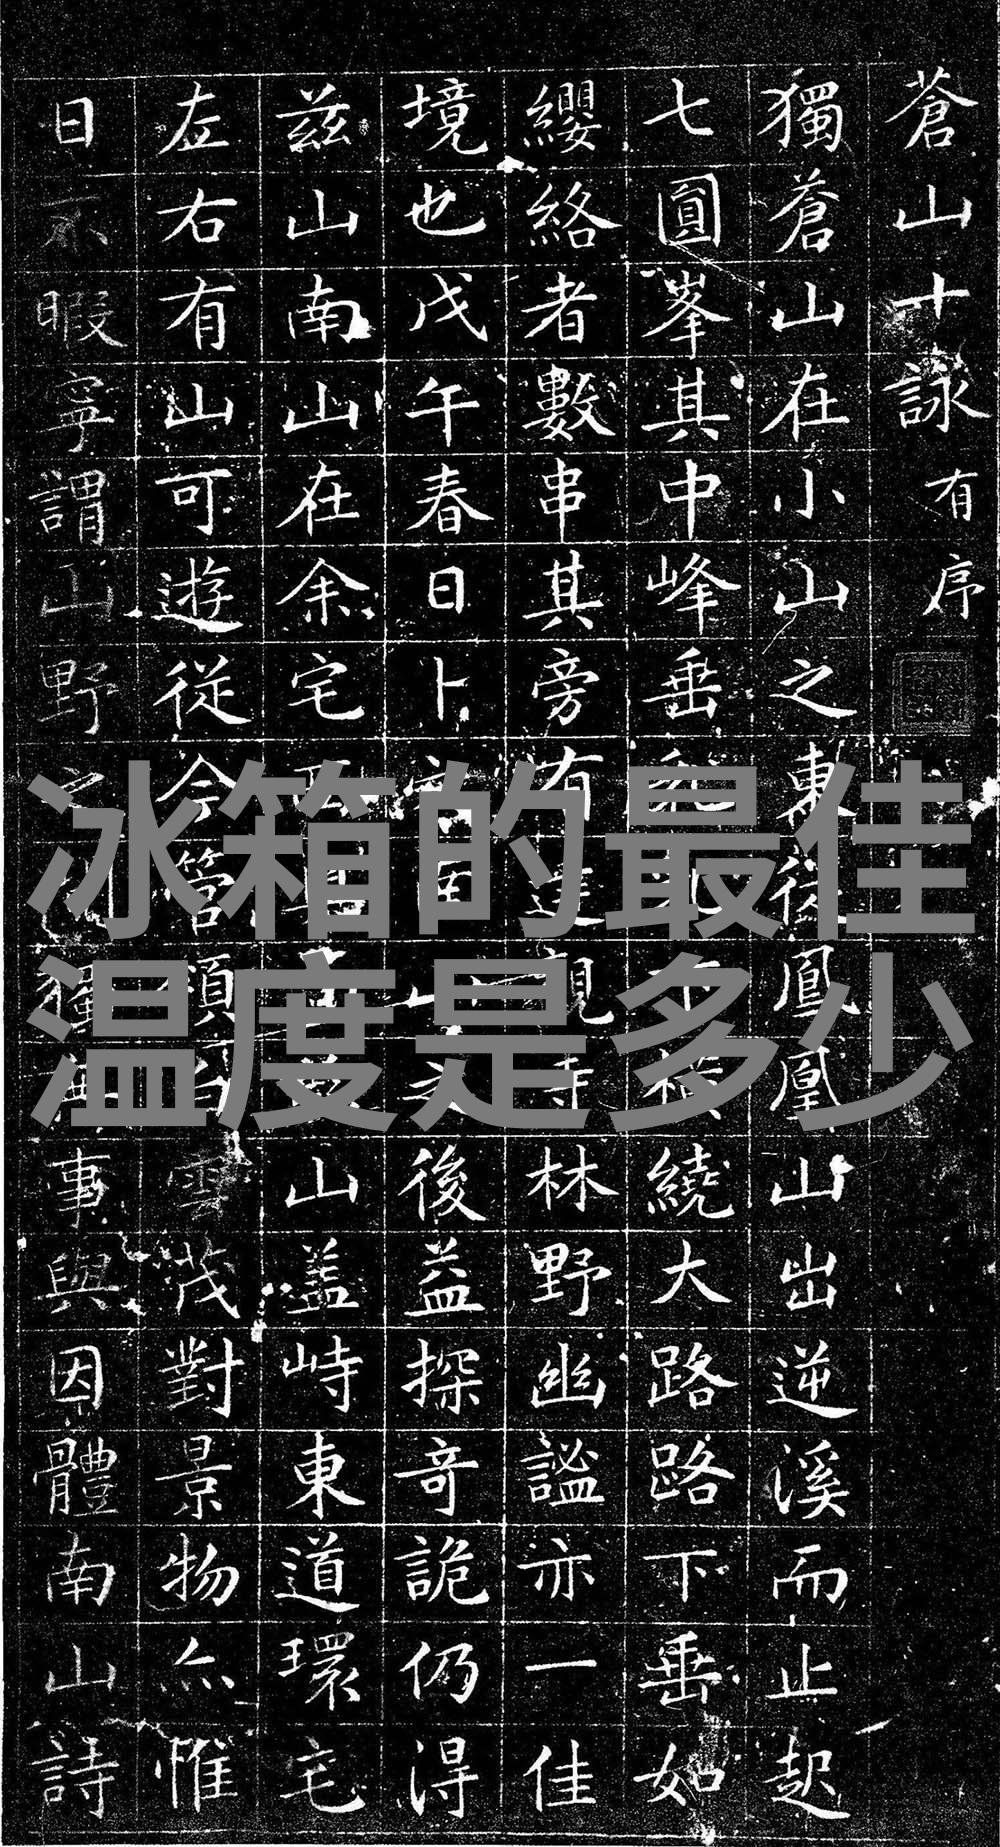 蒼山十詠有序
獨蒼山在小山之東從鳳凰山出逆溪而止起
七圓峯其中峰垂北下橫繞大路路下垂如
纓絡者數串其旁有達觀寺林野幽謐亦一佳
境也戊午春日卜之後益探奇詭仍得
茲山南山在余宅山盖峙東道環宅
左右有山可遊從今管領白雲茂對景物亦惟
日不暇寧謂山野之事與因體南山詩
冰箱的最佳
温度是多少